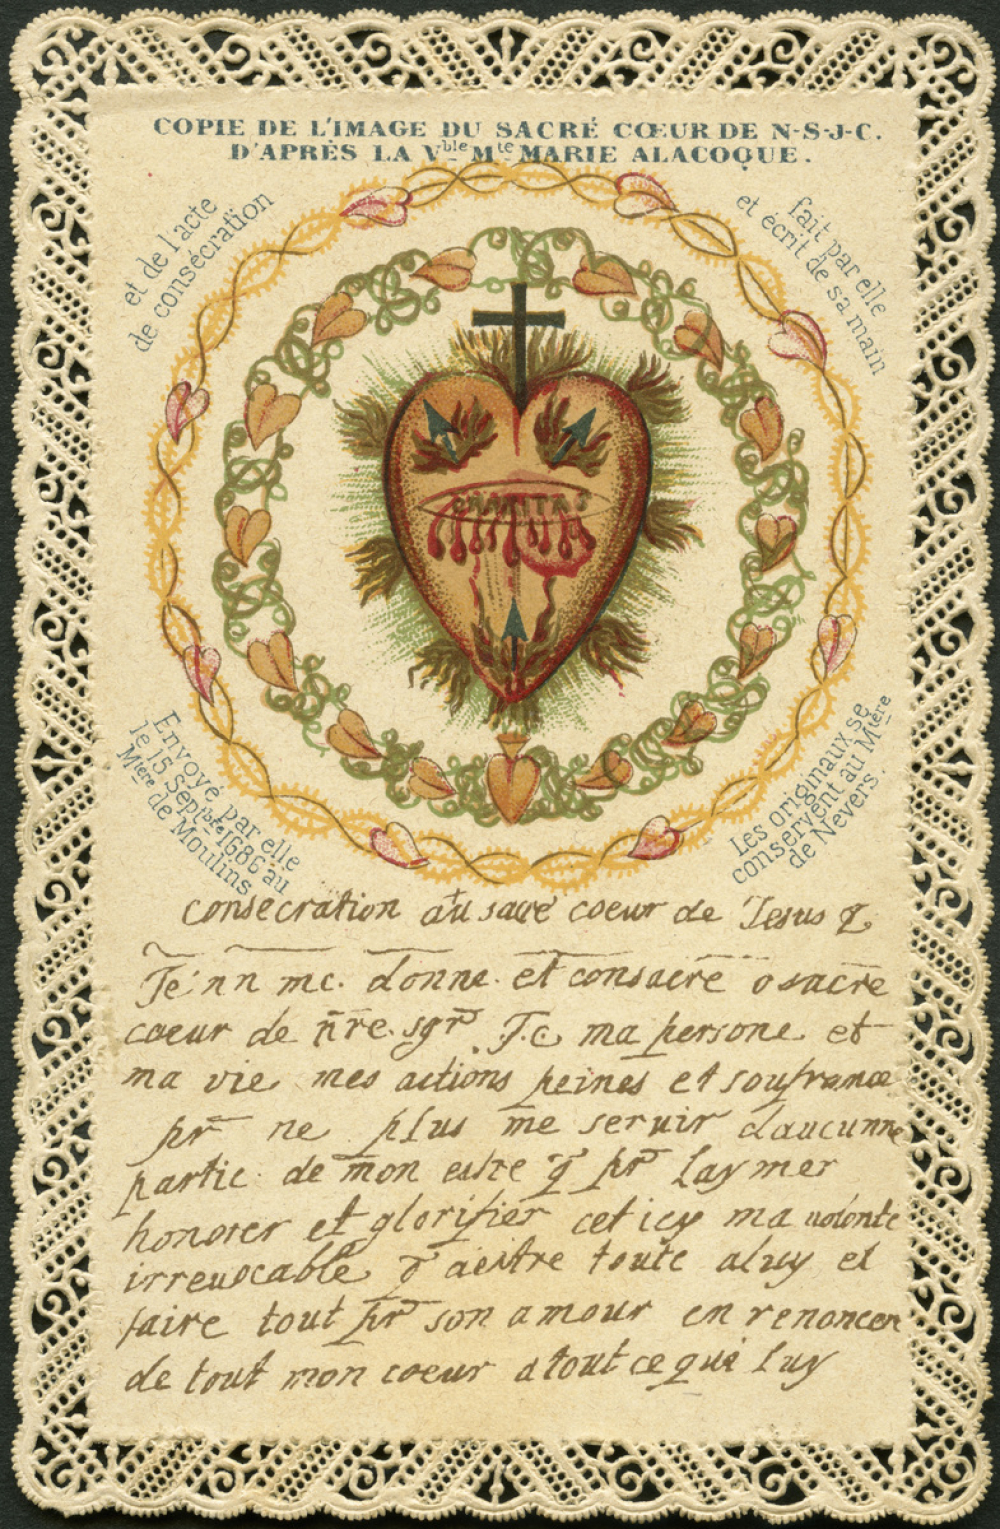 COPIE DE L'IMAGE DU SACRÉ CŒUR DE N-S-J-C.
D'APRÈS LA Vble Mte MARIE ALACOQUE.
et de l'acte
de consécration
fait par elle
et écrit de sa main
CHARITAS
Envoyé par elle
le 15 Septbre 1686 au
Mtère de Moulins
Les originaux se
conservent au Mtère
de Nevers.
consecration au sacré coeur de Jesus
Je nn mc. donne et consacre o sacre
coeur de n̄re sgr J.C ma persone et
ma vie mes actions peines et soufrance
pr ne plus me seruir daucunne
partie de mon estre q pr laymer
honorer et glorifier cet icy ma uolonte
irreuocable d aestre toute a luy et
faire tout pr son amour en renoncen
de tout mon coeur a tout ce qui luy